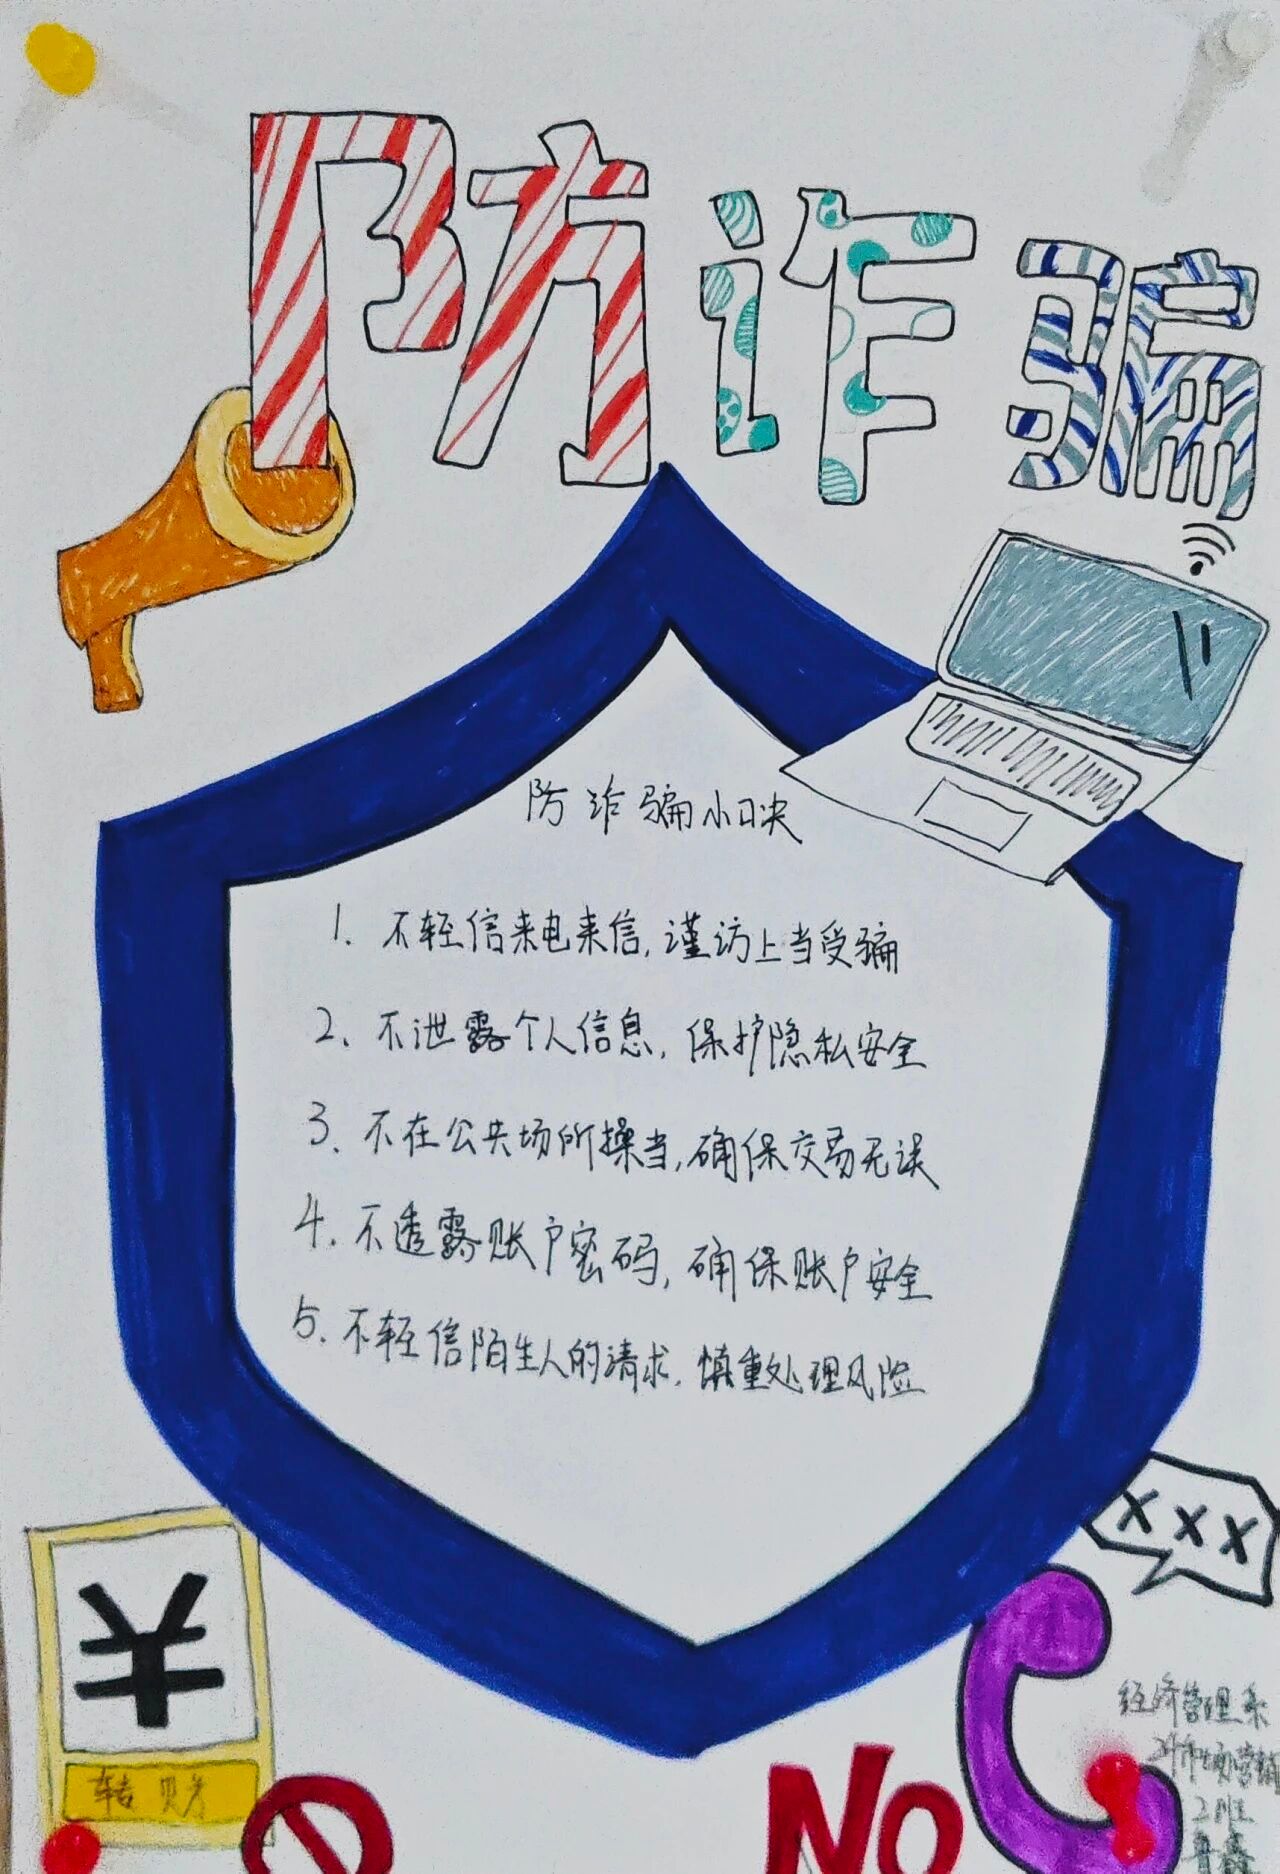 防诈骗
防诈骗小口决
1. 不轻信来电来信,谨访上当受骗
2. 不泄露个人信息, 保护隐私安全
3. 不在公共场所操当,确保交易无误
4. 不透露账户密码, 确保账户安全
5. 不轻信陌生人的请求, 慎重处理风险
XXX
¥
经济管理系
2班
NO